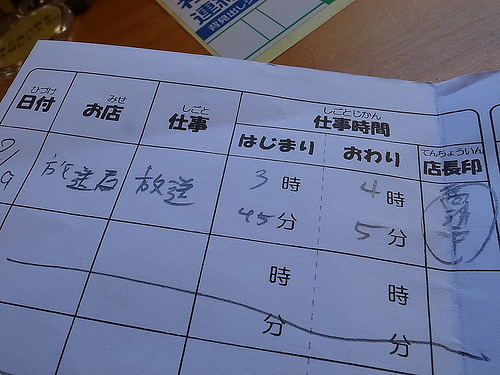 背見出し
ひづけ みせ しごと しごとじかん
日付 お店 仕事 仕事時間
はじまり おわり てんちょういん
店長印
9 放送局 放送 3 時 4 時
45 分 5 分
時 時
分 分